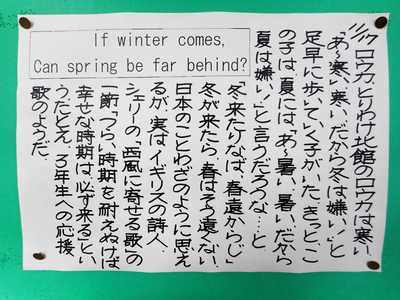 If winter comes,
Can spring be far behind?
11/17 ロウカ、とりわけ北館のロウカは寒い。
「あ〜寒い、寒い、だから冬は嫌い!」と
足早に歩いていく子がいた。きっと、こ
の子は夏には、「あ〜暑い、暑い、だから
夏は嫌い!」と言うだろうな…と
「冬来たりなば、春遠からじ」
冬が来たら、春はそう遠くない。
日本のことわざのように思え
るが、実はイギリスの詩人、
シェリーの「西風に寄せる歌」の
一節。「つらい時期を耐えぬけば
幸せな時期は必ず来る」とい
うたとえ。3年生への応援
歌のようだ。